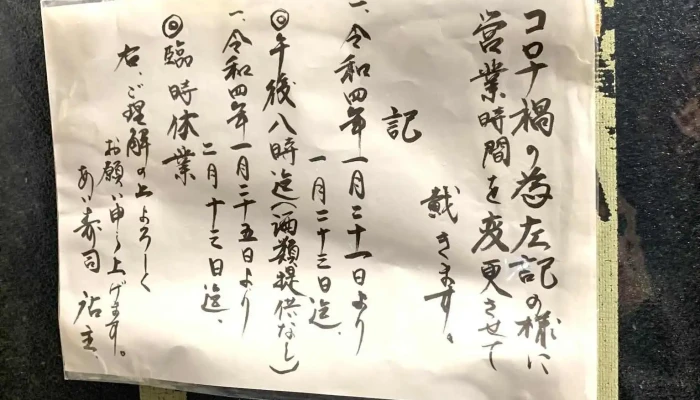 コロナ禍の為左記の様に
営業時間を変更させて
戴きます。
記
一、令和四年一月二十一日より
一月二十三日迄、
◎午後八時迄(酒類提供なし)
一、令和四年一月二十五日より
二月十三日迄、
◎臨時休業
右、ご理解の上よろしく
お願い申し上げます。
あい寿司 店主、